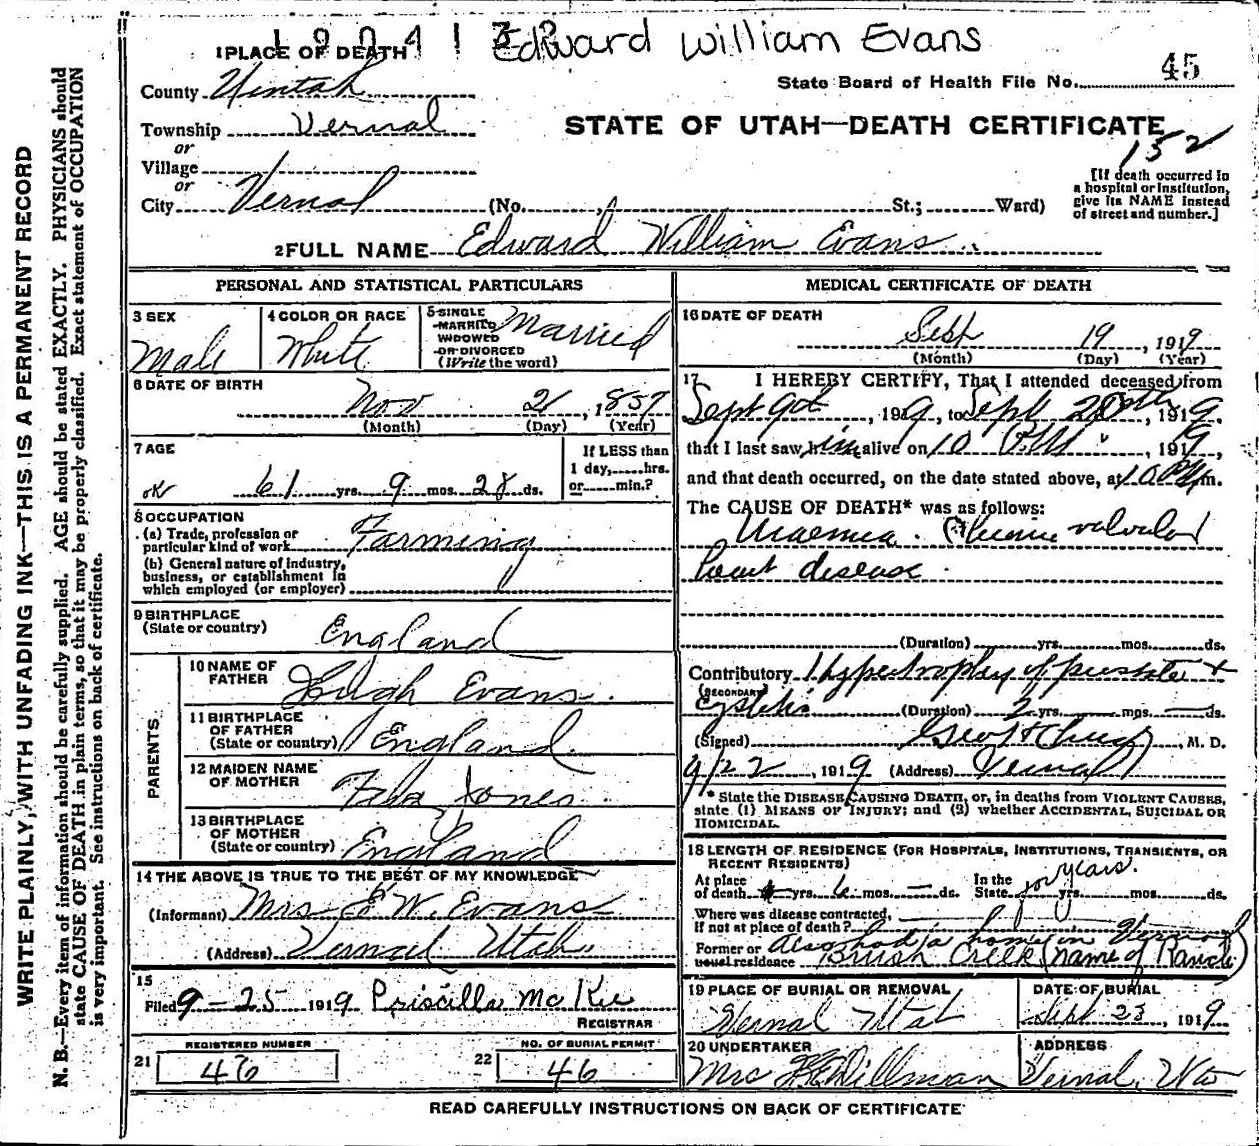 1904137 Edward William Evans
1 PLACE OF DEATH
State Board of Health File No. 45
County Uintah
Township Vernal
STATE OF UTAH—DEATH CERTIFICATE
152
or
Village
or
City Vernal (No. St.; Ward)
[If death occurred in a hospital or institution, give its NAME instead of street and number.]
2 FULL NAME Edward William Evans
PERSONAL AND STATISTICAL PARTICULARS
3 SEX
Male
4 COLOR OR RACE
White
5 SINGLE
MARRIED
WIDOWED
OR DIVORCED
(Write the word)
Married
6 DATE OF BIRTH
Nov 21, 1857
(Month) (Day) (Year)
7 AGE
If LESS than
1 day,......hrs.
or......min.?
ok 61 yrs. 9 mos. 28 ds.
8 OCCUPATION
(a) Trade, profession or
particular kind of work Farming
(b) General nature of industry,
business, or establishment in
which employed (or employer)
9 BIRTHPLACE
(State or country) England
PARENTS
10 NAME OF
FATHER Hugh Evans
11 BIRTHPLACE
OF FATHER
(State or country) England
12 MAIDEN NAME
OF MOTHER Jones
13 BIRTHPLACE
OF MOTHER
(State or country) England
14 THE ABOVE IS TRUE TO THE BEST OF MY KNOWLEDGE
(Informant) Mrs E W. Evans
(Address) Vernal Utah
15
Filed 9-25 1919 Priscilla McKee
REGISTRAR
21 REGISTERED NUMBER
46
22 NO. OF BURIAL PERMIT
46
MEDICAL CERTIFICATE OF DEATH
16 DATE OF DEATH
Sept 19, 1919
(Month) (Day) (Year)
17 I HEREBY CERTIFY, That I attended deceased from
Sept 9th, 1919, to Sept 20th, 1919,
that I last saw him alive on 10 P.M., 1919,
and that death occurred, on the date stated above, at 10 P.M. m.
The CAUSE OF DEATH* was as follows:
Uraemia. Chronic valvular
heart disease.
(Duration) yrs. mos. ds.
Contributory Hypertrophy of prostate +
(SECONDARY)
Cystitis (Duration) 2 yrs. — mos. — ds.
(Signed) Geo H , M. D.
9/22, 1919 (Address) Vernal
* State the DISEASE CAUSING DEATH, or, in deaths from VIOLENT CAUSES,
state (1) MEANS OF INJURY; and (2) whether ACCIDENTAL, SUICIDAL OR
HOMICIDAL.
18 LENGTH OF RESIDENCE (FOR HOSPITALS, INSTITUTIONS, TRANSIENTS, OR
RECENT RESIDENTS)
At place
of death yrs. 6 mos. — ds. In the
State for years. yrs. mos. ds.
Where was disease contracted,
If not at place of death?
Former or
usual residence Also had a home in Vernal
Brush Creek (name of Ranch)
19 PLACE OF BURIAL OR REMOVAL
Vernal Utah
DATE OF BURIAL
Sept 23, 1919
20 UNDERTAKER
Mrs Dillman
ADDRESS
Vernal,
READ CAREFULLY INSTRUCTIONS ON BACK OF CERTIFICATE
WRITE PLAINLY, WITH UNFADING INK—THIS IS A PERMANENT RECORD
N. B.—Every item of information should be carefully supplied. AGE should be stated EXACTLY. PHYSICIANS should
state CAUSE OF DEATH in plain terms, so that it may be properly classified. Exact statement of OCCUPATION
is very important. See instructions on back of certificate.